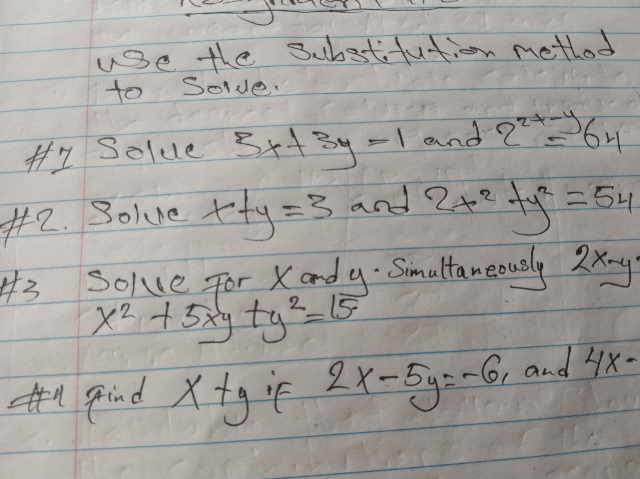 use the substitution method
to solve.
#1 Solve 3x+3y=1 and 2^{2x-y}=64
#2. Solve x+y=3 and 2x²+y²=54
#3 Solve for x and y. Simultaneously 2x-y
x²+5xy+y²=15
#4 find x+y if 2x-5y=-6, and 4x-